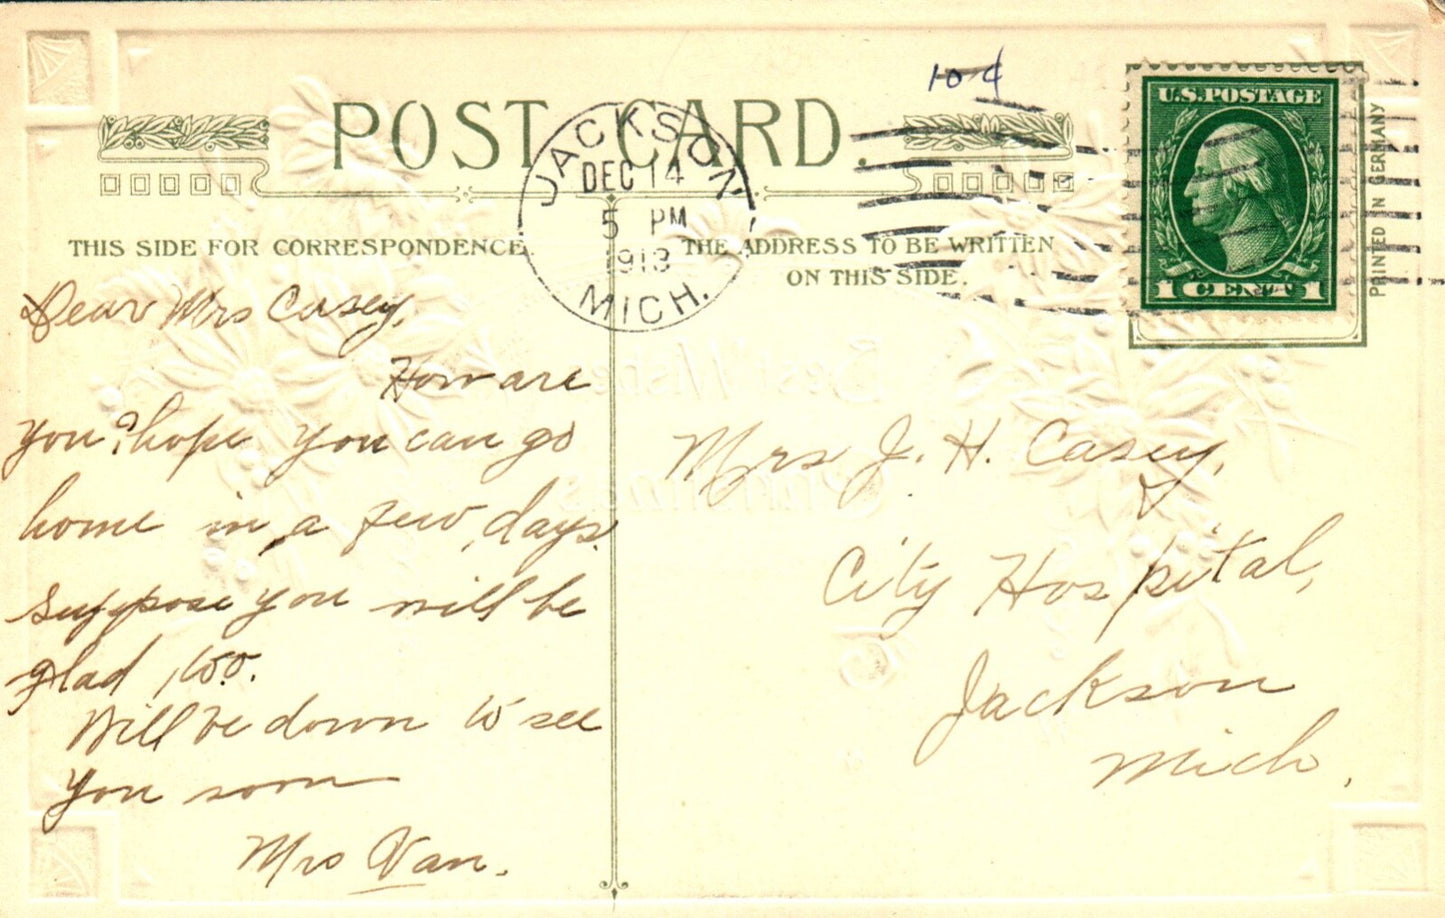 10¢
POST CARD.
JACKSON
DEC 14
5 PM
1913
MICH.
U.S. POSTAGE
1 CENT 1
PRINTED IN GERMANY
THIS SIDE FOR CORRESPONDENCE.
THE ADDRESS TO BE WRITTEN
ON THIS SIDE.
Dear Mrs Casey,
How are
you? hope you can go
home in a few days.
Suppose you will be
glad, too.
Will be down to see
you soon
Mrs Van.
Mrs J. H. Casey,
City Hospital,
Jackson
Mich.
Best Wishes
Christmas